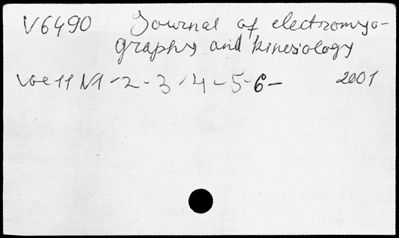 V6490 Journal of electromyo-
graphy and kinesiology
Vol 11 N1-2-3-4-5-6- 2001